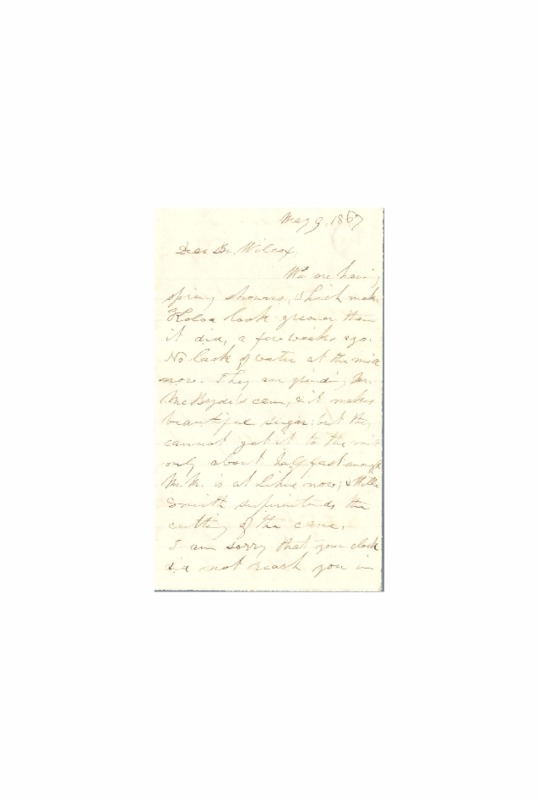 May 9. 1867
Dear Br. Wilcox,
We are having
spring showers, which make
Koloa look greener than
it did, a few weeks ago.
No lack of water at the mill
now. They are grinding Mr.
McBryde's cane, & it makes
beautiful sugar, but they
cannot get it to the mill
only about half fast enough
is at Lihue now, &
Smith superintends the
cutting of the cane.
I am sorry that your clock
did not reach you in